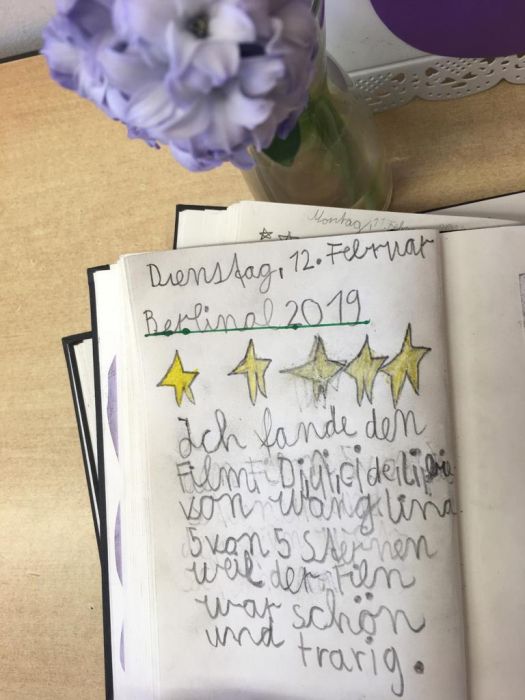 Montag, 11. Feb
Dienstag, 12. Februar
Berlinal 2019
Ich fande den
Film
von Wang Lina
5 von 5 Sternen
weil der Film
war schön
und trarig.